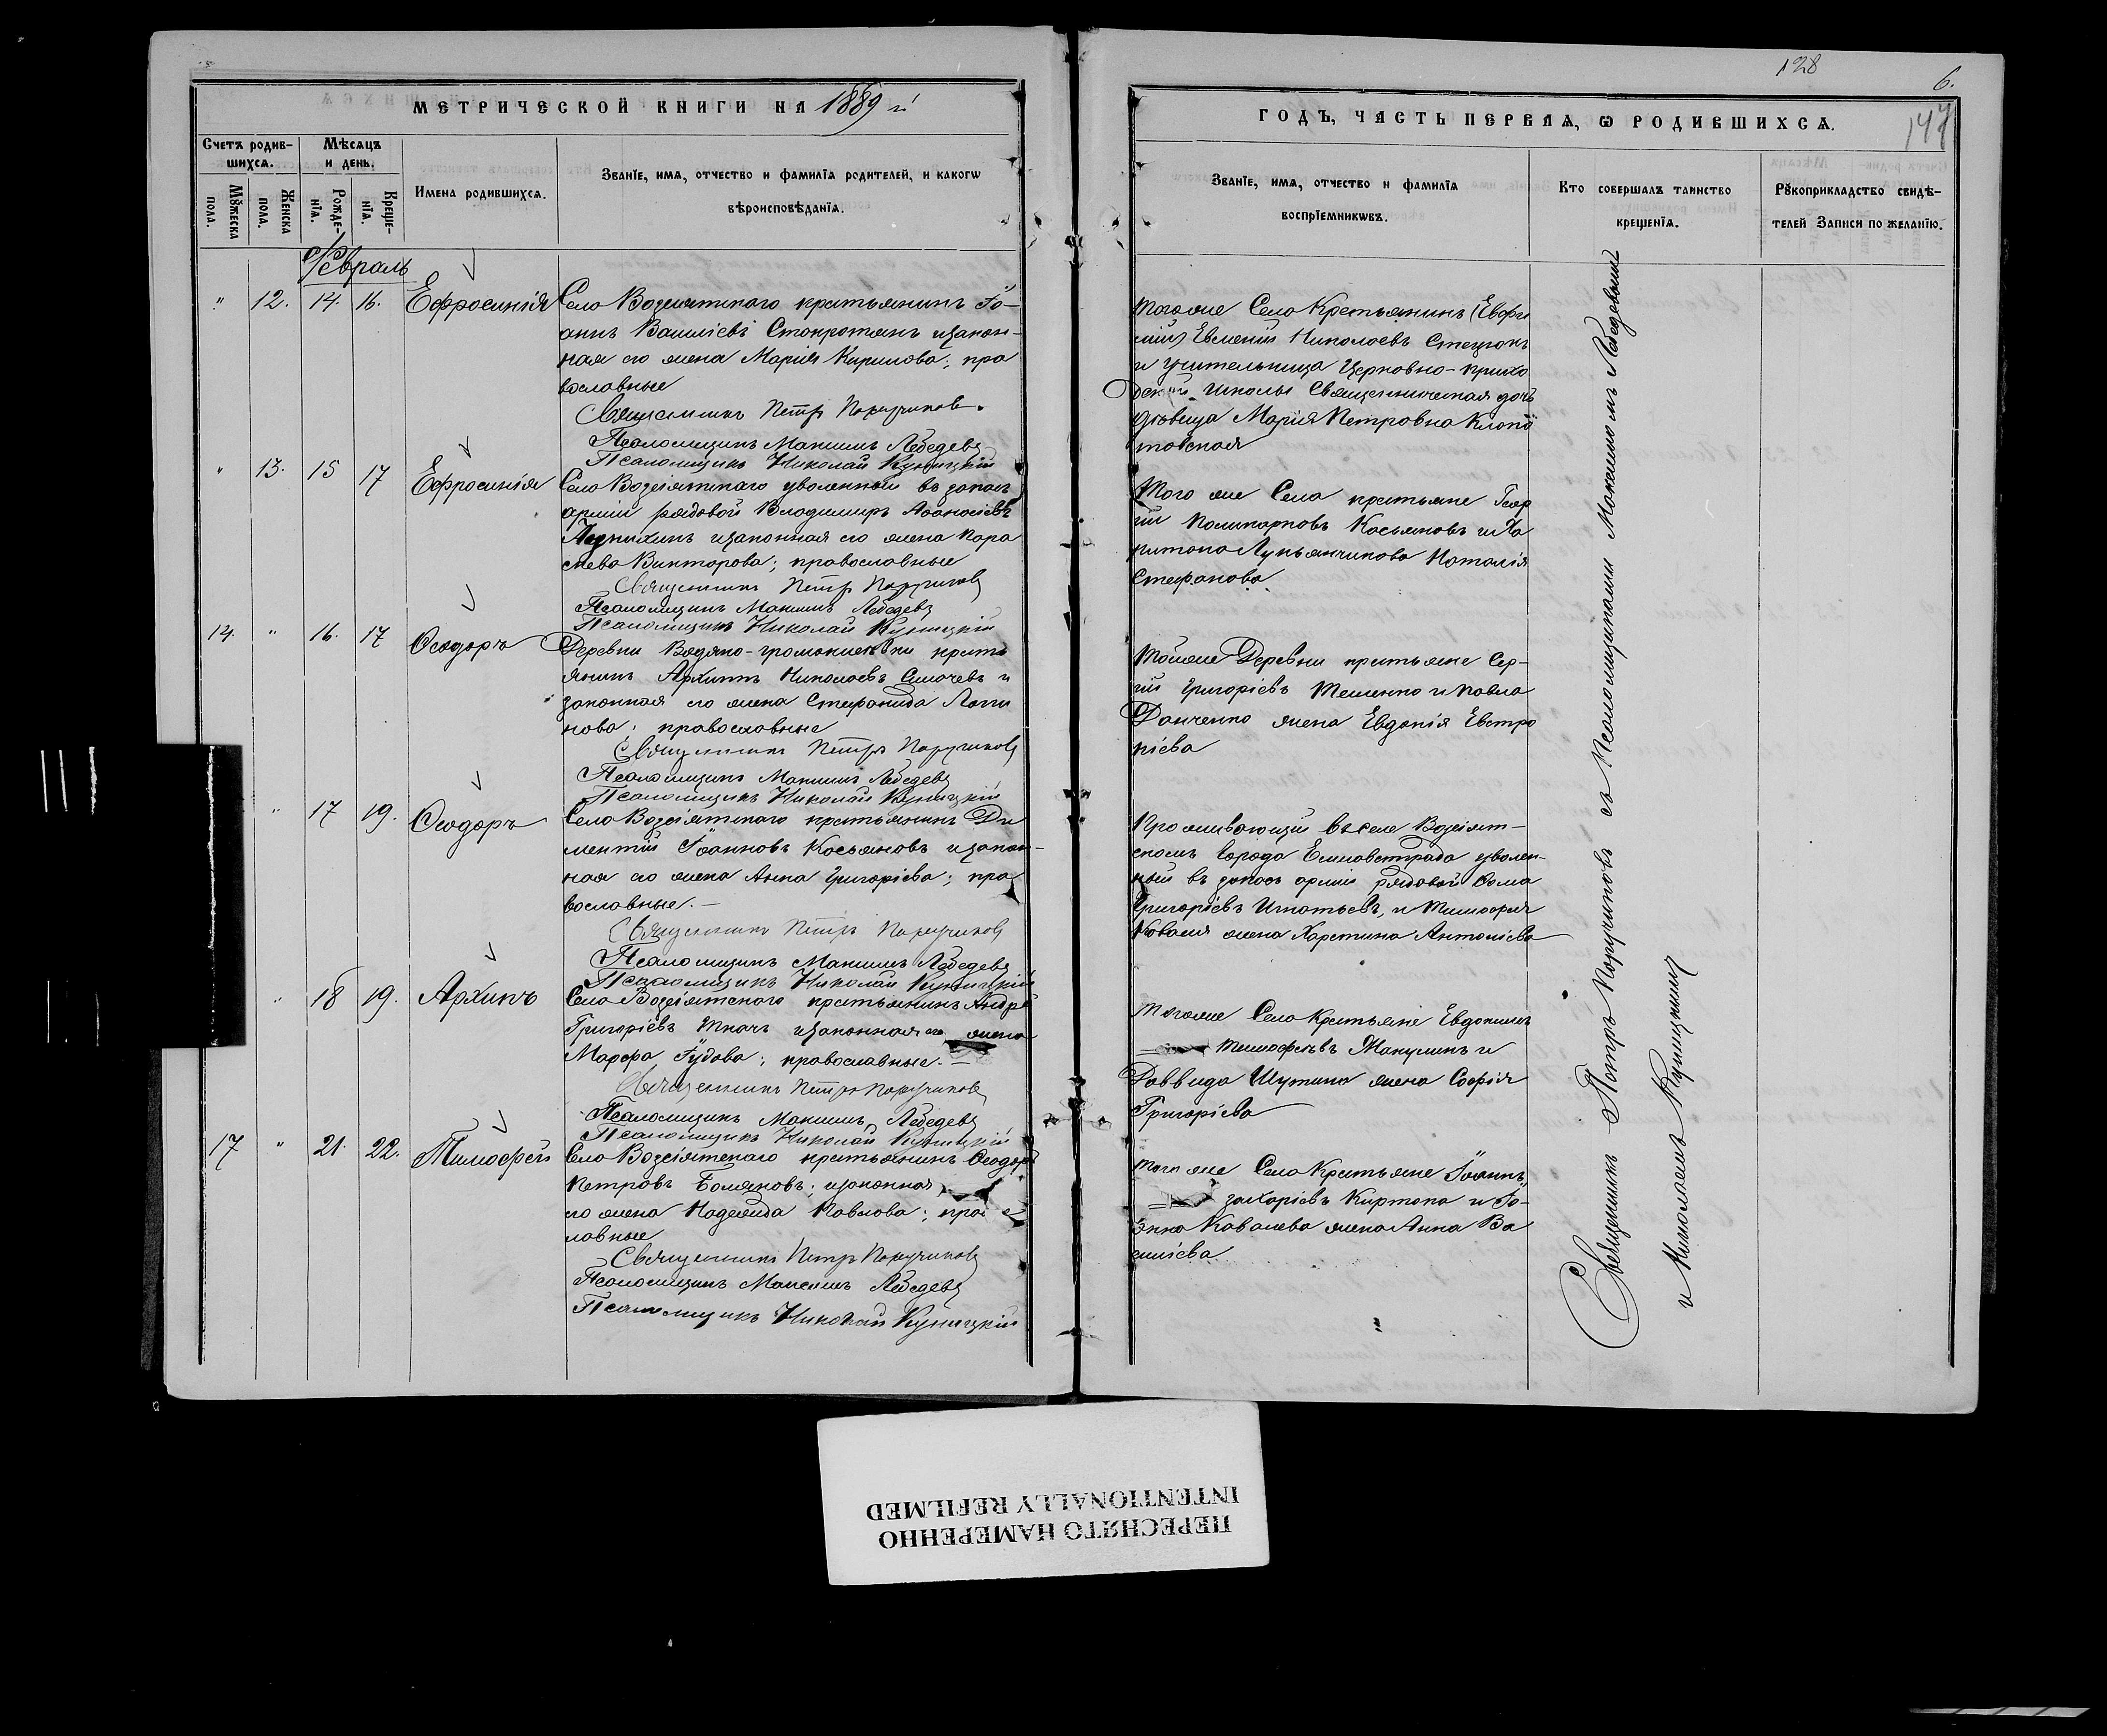 128
6.
147
МЕТРИЧЕСКОЙ КНИГИ НА 1889 й
Счетъ родившихся.
Мѣсяцъ и день.
Мꙋжеска пола.
Женска пола.
Рожденїа.
Крещенїа.
Имена родившихсѧ.
Званїе, имѧ, отчество и фамилїа родителей, и какогѡ
вѣроисповѣданїа.
Февраль
" 12. 14. 16. Ефросинія
Село Возсіятскаго крестьянинъ Іо-
аннъ Василіевъ Стокротянъ изакон-
ная его жена Марія Кирилова; пра
вославные
Священникъ Петръ Поручиковъ.
Псаломщикъ Максимъ Лебедевъ
Псаломщикъ Николай Куницкій
" 13. 15 17 Ефросинія
Село Возсіятскаго уволенный въ запасъ
арміи рядовой Владимиръ Афанасіевъ
изаконная его жена Пара
скева Викторова; православные
Священникъ Петръ Поручиковъ
Псаломщикъ Максимъ Лебедевъ
Псаломщикъ Николай Куницкій
14. " 16. 17 Ѳеодоръ
Деревни Водяно-громоклеи кресть
янинъ Архиппъ Николаевъ и
законная его жена Стефанида Логги
нова; православные
Священникъ Петръ Поручиковъ
Псаломщикъ Максимъ Лебедевъ
Псаломщикъ Николай Куницкій
" 17 19. Ѳеодоръ
Село Возсіятскаго крестьянинъ Ди
ментій Іоанновъ Косьяновъ изакон-
ная его жена Анна Григоріева; пра
вославные.-
Священникъ Петръ Поручиковъ
Псаломщикъ Максимъ Лебедевъ
Псаломщикъ Николай Куницкій
" 18 19. Архипъ
Село Возсіятскаго крестьянинъ Андрей
Григоріевъ Ткачъ изаконная его жена
Марфа Іудова; православные.-
Священникъ Петръ Поручиковъ
Псаломщикъ Максимъ Лебедевъ
Псаломщикъ Николай Куницкій
17 " 21. 22. Тимофей
Село Возсіятскаго крестьянинъ Ѳеодоръ
Петровъ Божановъ; изаконная
его жена Надежда Павлова; пра
лавные
Священникъ Петръ Поручиковъ
Псаломщикъ Максимъ Лебедевъ
Псаломщикъ Николай Куницкій
ГОДЪ, ЧАСТЬ ПЕРВАѦ, Ѡ РОДИВШИХСѦ.
Званїе, имѧ, отчество и фамилїа
воспрїемникѡвъ.
Кто совершалъ таинство
крещенїа.
Рꙋкоприкладство свидѣ-
телей Записи по желанїю.
Тогоже Села Крестьянинъ (Евфи
мій) Евменій Николаевъ Стецюкъ
и учительница Церковно-прихо
дской школы Священническая дочь
дѣвица Марія Петровна Клопо
товская
Того же Села крестьяне Геор
гій Поликарповъ Косьяновъ и Ха
ритона Лукьянчикова Наталія
Стефанова
Тойже Деревни крестьяне Сер-
гій Григоріевъ Тешенко и Павла
Данченко жена Евдокія Евстро
піева
Проживающій въ селе Возсіят-
скомъ города Елисаветграда уволен-
ный въ запасъ арміи рядовой Ѳома
Григоріевъ Игнатьевъ, и Тимофея
Коваля жена Харстина Антоніева
Тогоже Села Крестьяне Евдокимъ
Тимофеевъ Макулинъ и
Даввида Шутина жена Софія
Григоріева
Того же Села Крестьяне Іоаннъ
Захаріевъ Киртока и Іо-
анна Ковалева жена Анна Ва
силіева
Священникъ Петръ Поручиковъ съ Псаломщиками Максимомъ Лебедевымъ
и Николаемъ Куницкимъ
ПЕРЕСНЯТО НАМЕРЕННО
INTENTIONALLY REFILMED